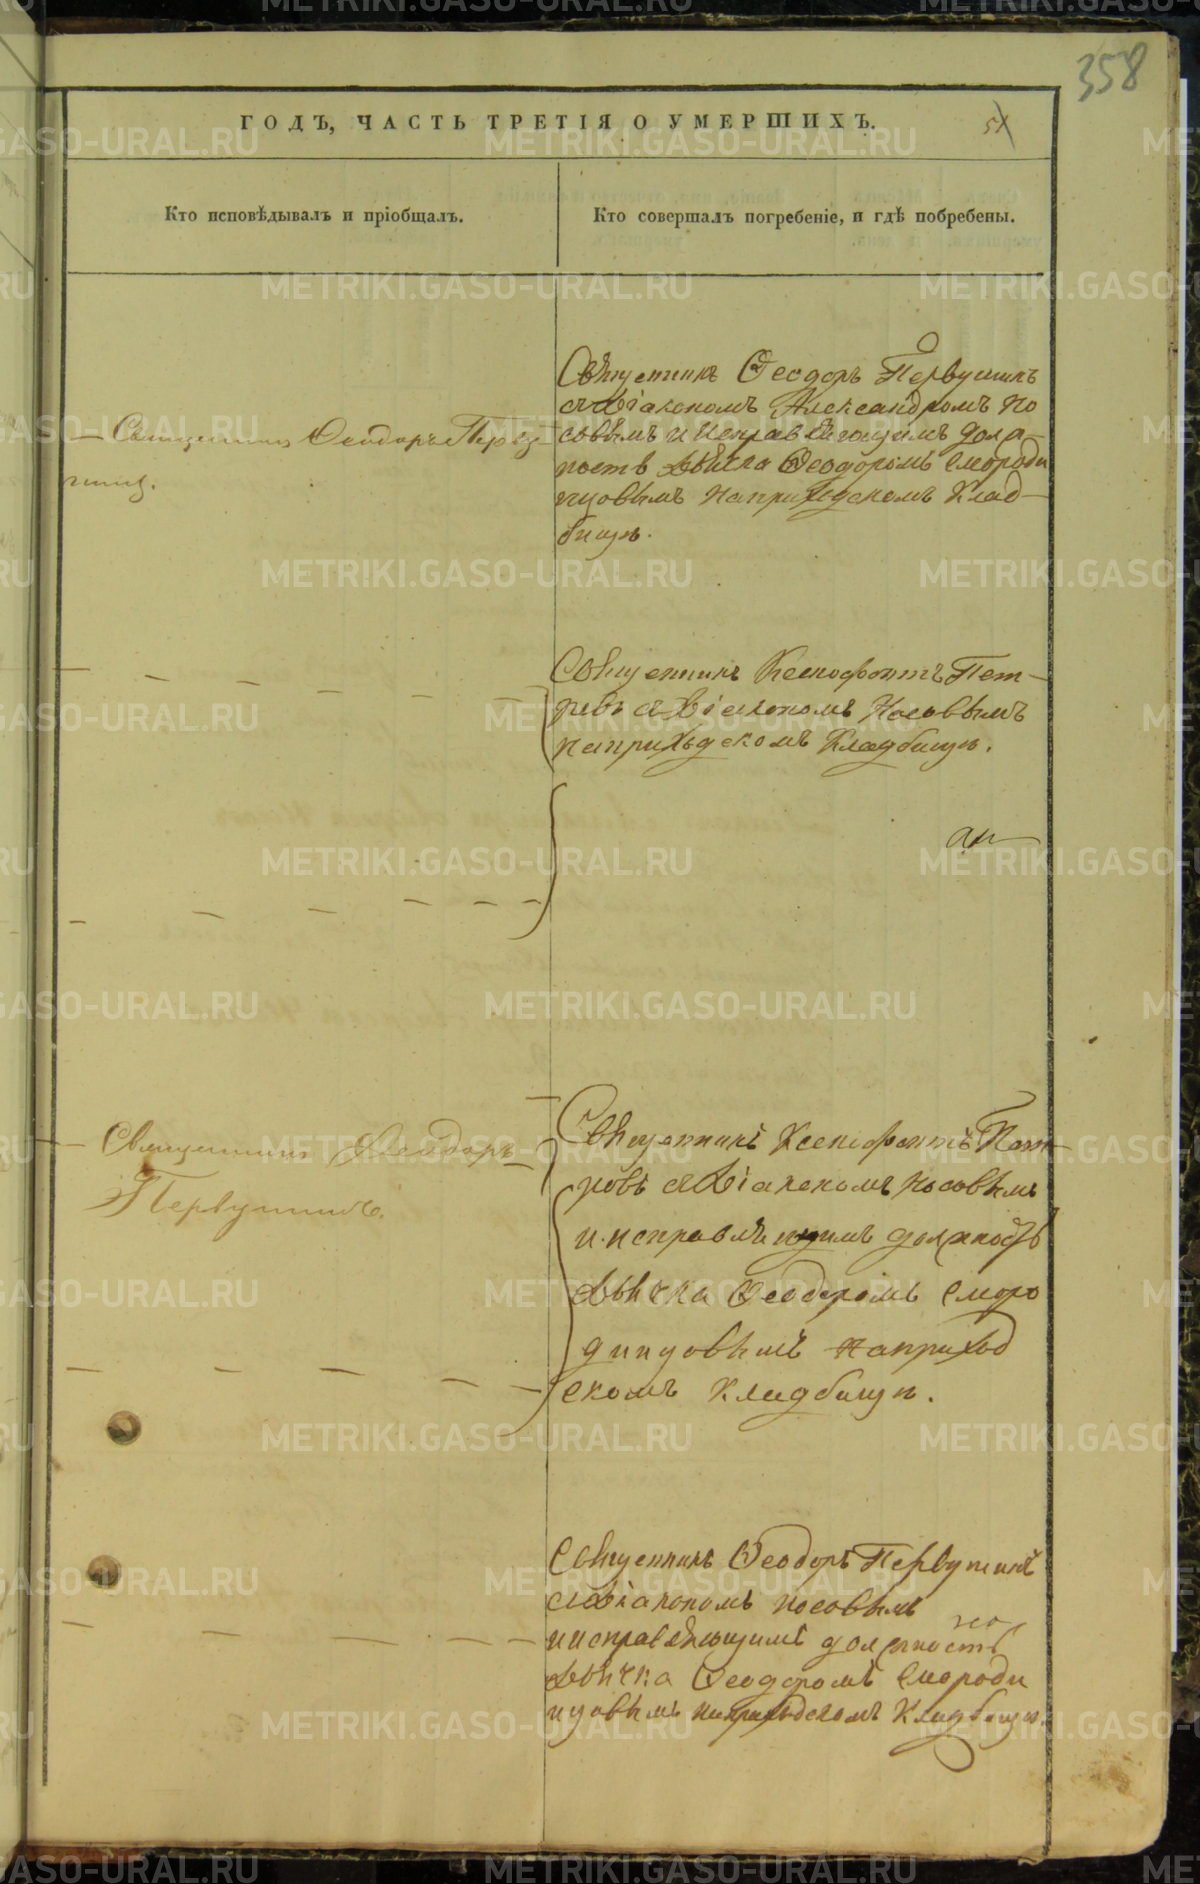 358
ГОДЪ, ЧАСТЬ ТРЕТІЯ О УМЕРШИХЪ.
Кто исповѣдывалъ и пріобщалъ.
Кто совершалъ погребеніе, и гдѣ побребены.
Священникъ Ѳеодоръ Первушинъ
съ Діакономъ Александромъ Но
совымъ и исправляющимъ долж-
ность Дьячка Ѳеодоромъ Смороди
нцовымъ на приходскомъ клад-
бищѣ.
Священникъ Ѳеодоръ Перву-
шинъ.
Священникъ Ксенофонтъ Пет-
ровъ съ Діакономъ Носовымъ
на приходскомъ кладбищѣ.
Священникъ Ѳеодоръ
Первушинъ.
Священникъ Ксенофонтъ Пет-
ровъ съ Діакономъ Носовымъ
и исправляющимъ должность
Дьячка Ѳеодоромъ Сморо
динцовымъ на приход
скомъ кладбищѣ.
Священникъ Ѳеодоръ Первушинъ
съ Діакономъ Носовымъ
и исправляющимъ должность
Дьячка Ѳеодоромъ Смороди
нцовымъ на приходскомъ кладбищѣ.
METRIKI.GASO-URAL.RU